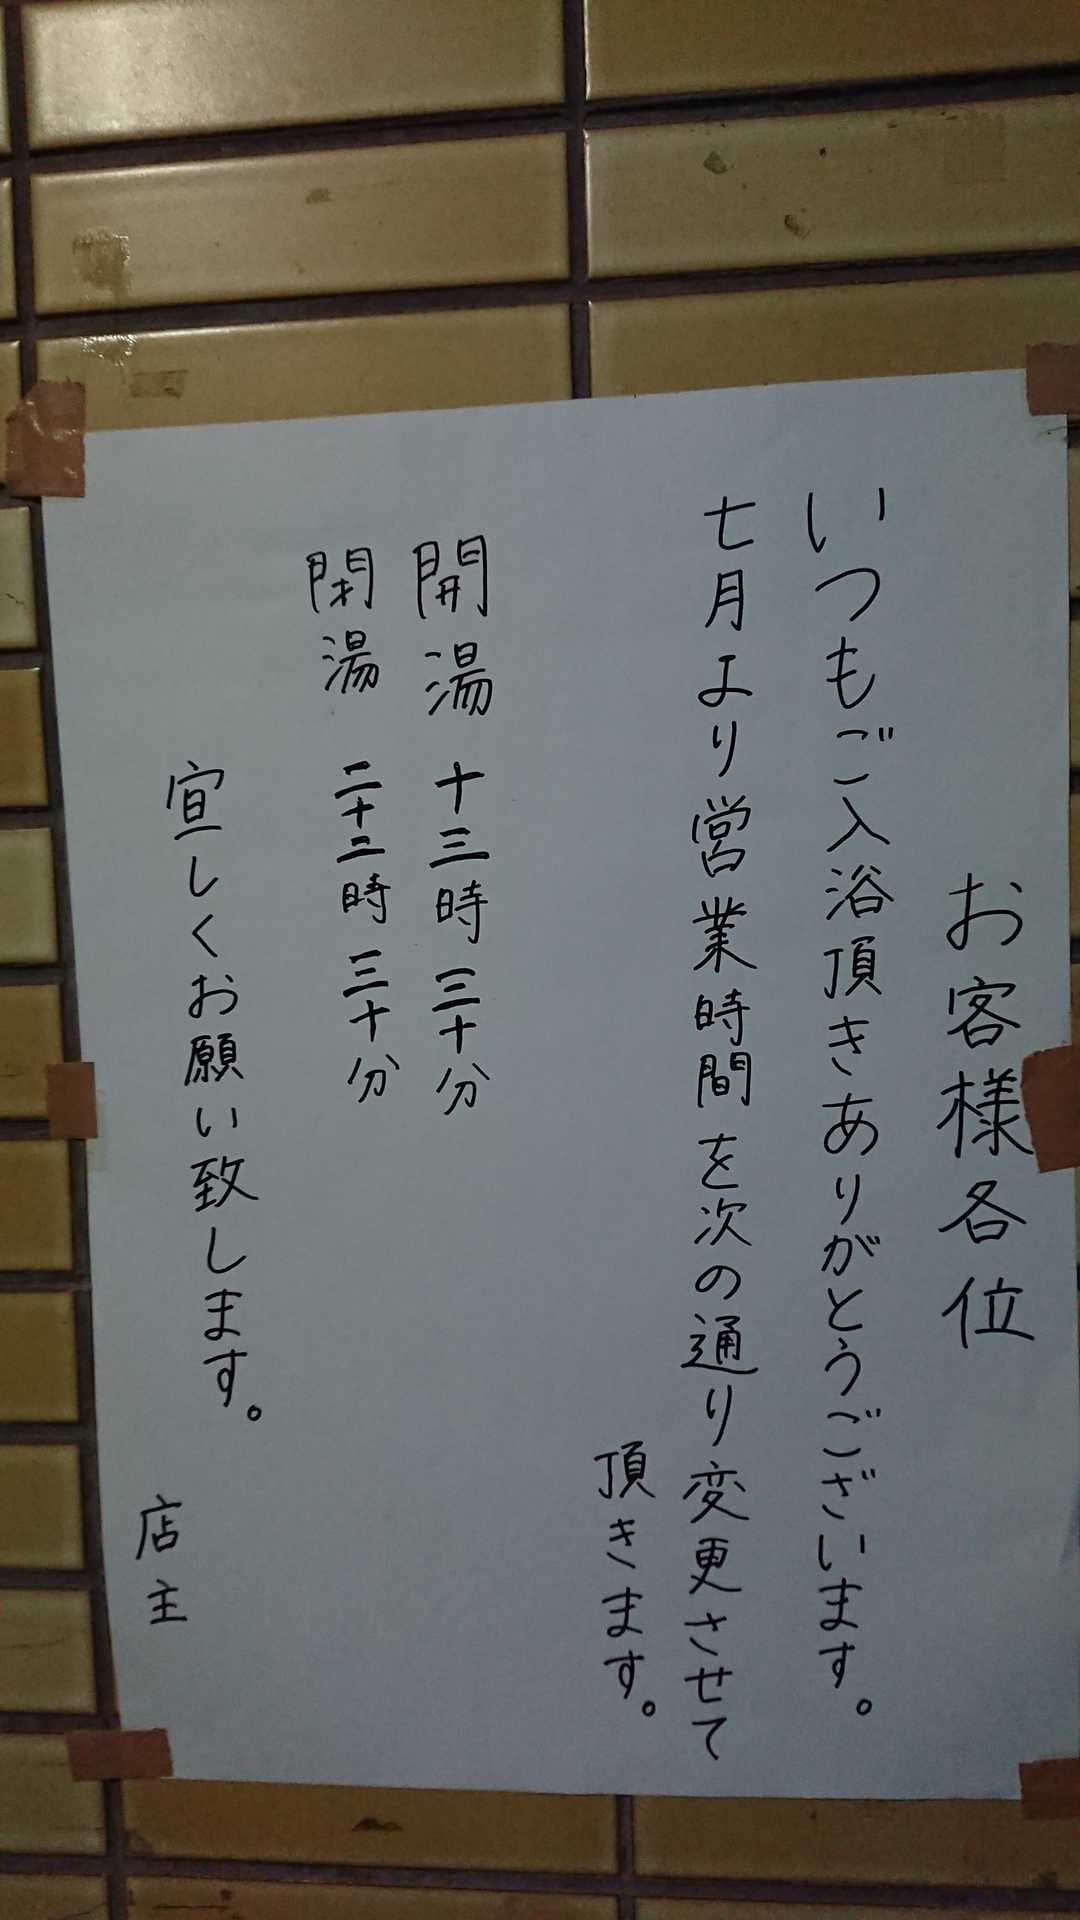 お客様各位
いつもご入浴頂きありがとうございます。
七月より営業時間を次の通り変更させて
頂きます。
開湯 十三時三十分
閉湯 二十二時三十分
宜しくお願い致します。
店主